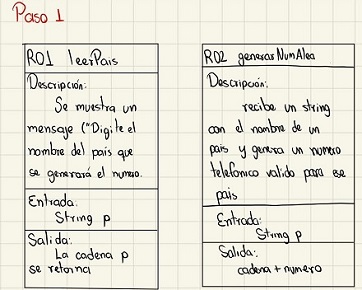 Paso 1
R01 leerPais
Descripción:
Se muestra un
mensaje ("Digite el
nombre del país que
se generará el numero.
Entrada:
String p
Salida:
La cadena p
se retorna
R02 generarNumAlea
Descripción:
recibe un string
con el nombre de un
país y genera un numero
telefonico valido para ese
país
Entrada:
String p
Salida:
cadena + numero